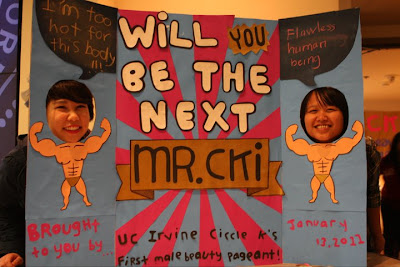 I'm too
hot for
this body
!!!
WiLL YOU
BE THE
NEXT
MR.CKi
UC Irvine Circle K's
First male beauty pageant!
Flawless
human
being
BROUGHT
to you by...
January
13, 2011